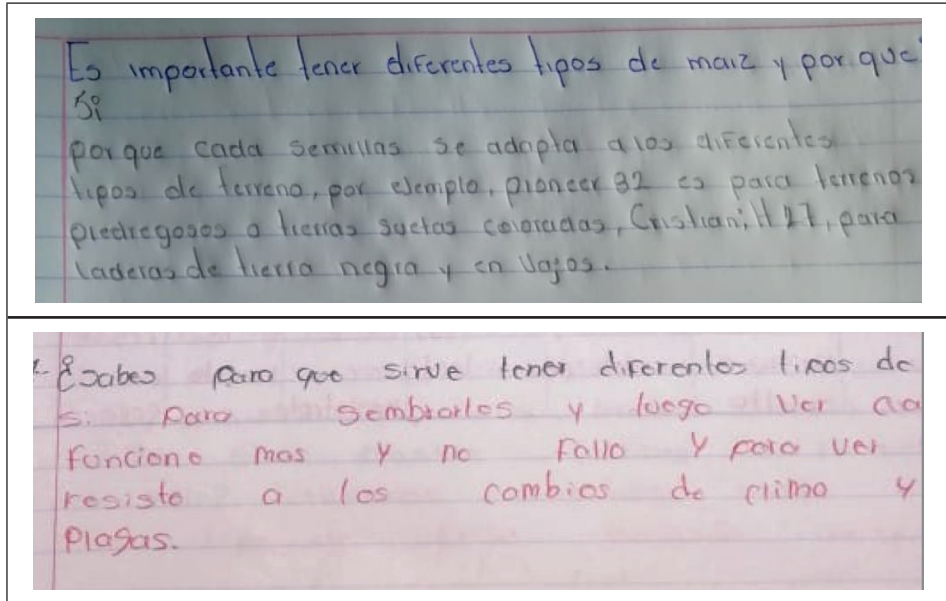 Es importante tener diferentes tipos de maiz y por que
Si
porque cada semillas se adapta a los diferentes
tipos de terreno, por ejemplo, pioneer 32 es para terrenos
piedregosos o tierras suetas coloradas, Cristiani H 27, para
laderas de tierra negra y en vajos.
¿Sabes para que sirve tener diferentes tipos de
si para sembrarlos y luego ver
funcione mas y no fallo y para ver
resiste a los cambios de clima y
plagas.